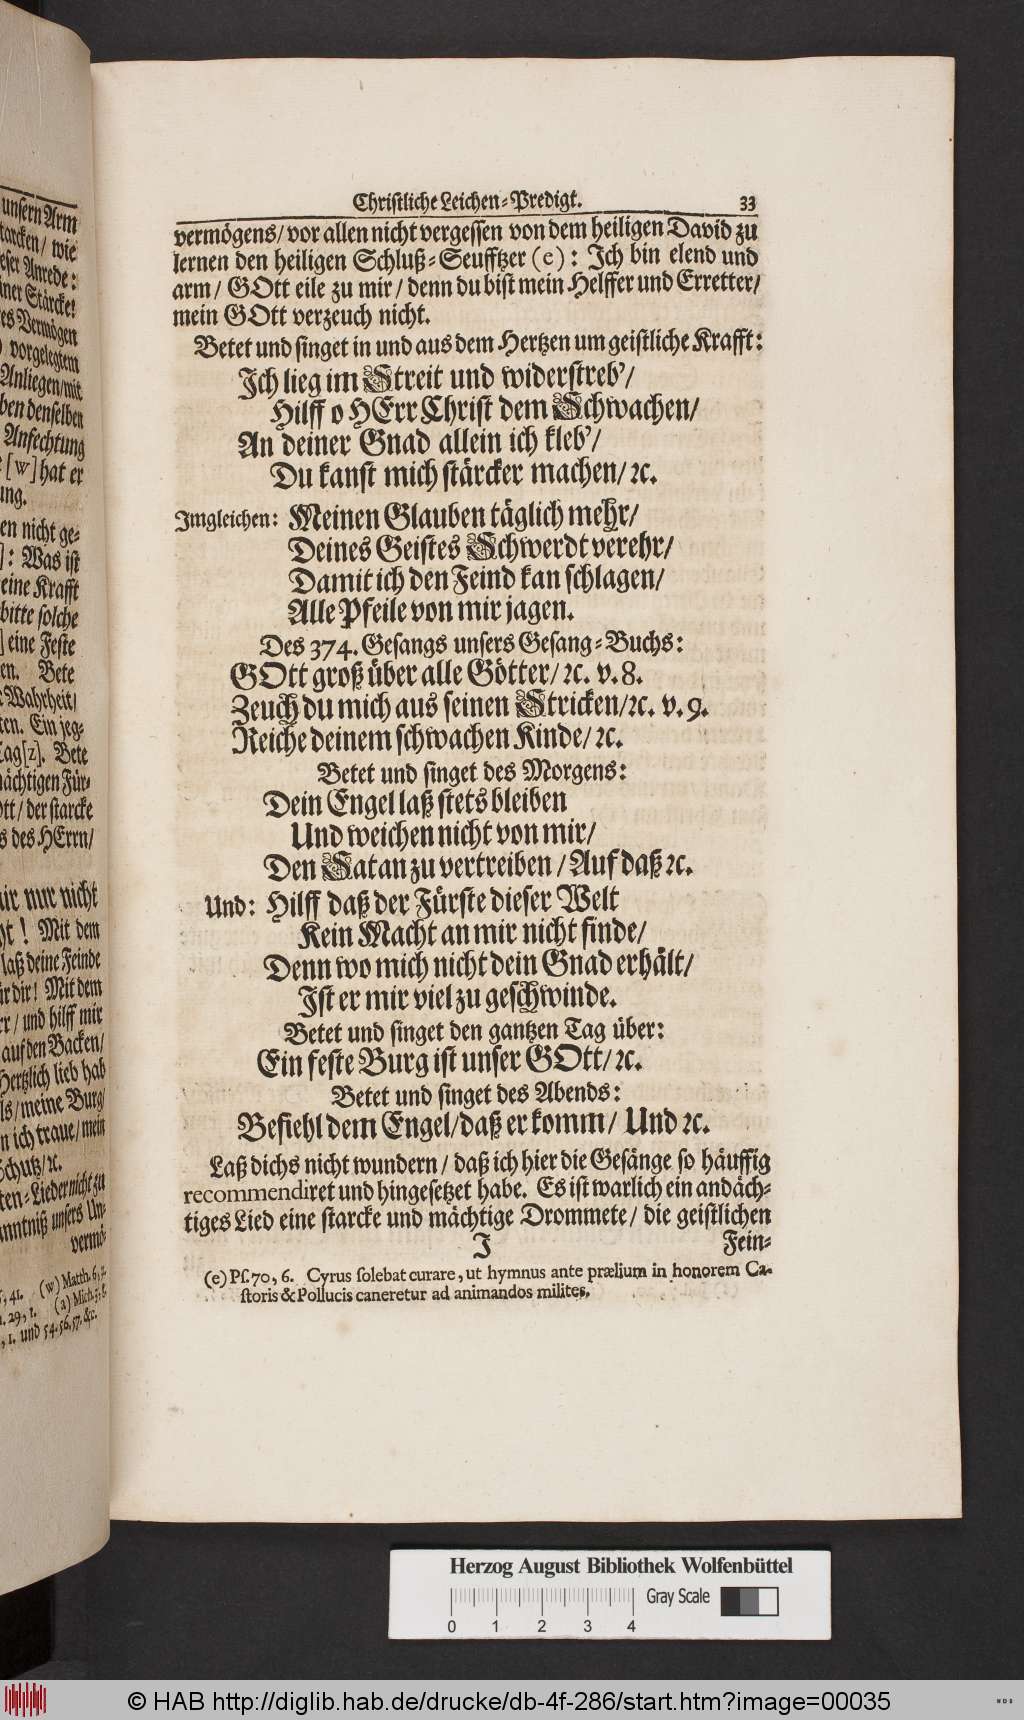 unsern Arm
starcken/ wie
dieser Anrede:
meiner Stärcke!
Vermögen
vorgelegtem
Anliegen/mit
haben denselben
Anfechtung
[w] hat er
en nicht ge-
]: Was ist
eine Krafft
bitte solche
] eine Feste
en. Bete
Wahrheit/
ten. Ein jeg-
Tag[z]. Bete
mächtigen Für-
Gott/ der starcke
des HErrn/
mir nur nicht
nicht! Mit dem
laß deine Feinde
für dir! Mit dem
HErr/ und hilff mir
auf den Backen/
Hertzlich lieb hab
Fels/meine Burg/
den ich traue/mein
Schutz/ꝛc.
ten-Lieder nicht zu
Erkanntniß unsers Un-
vermö-
, 41. (w) Matth. 6, 2.
. 29, 1. (a) Mich. 5, 8.
, 1. und 54. 56. 57. &c.
Christliche Leichen-Predigt. 33
vermögens/ vor allen nicht vergessen von dem heiligen David zu
lernen den heiligen Schluß-Seufftzer (e): Ich bin elend und
arm/ GOtt eile zu mir/ denn du bist mein Helffer und Erretter/
mein GOtt verzeuch nicht.
Betet und singet in und aus dem Hertzen um geistliche Krafft:
Ich lieg im Streit und widerstreb’/
Hilff o HErr Christ dem Schwachen/
An deiner Gnad allein ich kleb’/
Du kanst mich stärcker machen/ ꝛc.
Imgleichen: Meinen Glauben täglich mehr/
Deines Geistes Schwerdt verehr/
Damit ich den Feind kan schlagen/
Alle Pfeile von mir jagen.
Des 374. Gesangs unsers Gesang-Buchs:
GOtt groß über alle Götter/ ꝛc. v. 8.
Zeuch du mich aus seinen Stricken/ꝛc. v. 9.
Reiche deinem schwachen Kinde/ ꝛc.
Betet und singet des Morgens:
Dein Engel laß stets bleiben
Und weichen nicht von mir/
Den Satan zu vertreiben/ Auf daß ꝛc.
Und: Hilff daß der Fürste dieser Welt
Kein Macht an mir nicht finde/
Denn wo mich nicht dein Gnad erhält/
Ist er mir viel zu geschwinde.
Betet und singet den gantzen Tag über:
Ein feste Burg ist unser GOtt/ ꝛc.
Betet und singet des Abends:
Befiehl dem Engel/ daß er komm/ Und ꝛc.
Laß dichs nicht wundern/ daß ich hier die Gesänge so häuffig
recommendiret und hingesetzet habe. Es ist warlich ein andäch-
tiges Lied eine starcke und mächtige Drommete/ die geistlichen
I Fein-
(e) Pſ. 70, 6. Cyrus ſolebat curare, ut hymnus ante prælium in honorem Ca-
ſtoris & Pollucis caneretur ad animandos milites.
Herzog August Bibliothek Wolfenbüttel
Gray Scale
0 1 2 3 4
© HAB http://diglib.hab.de/drucke/db-4f-286/start.htm?image=00035